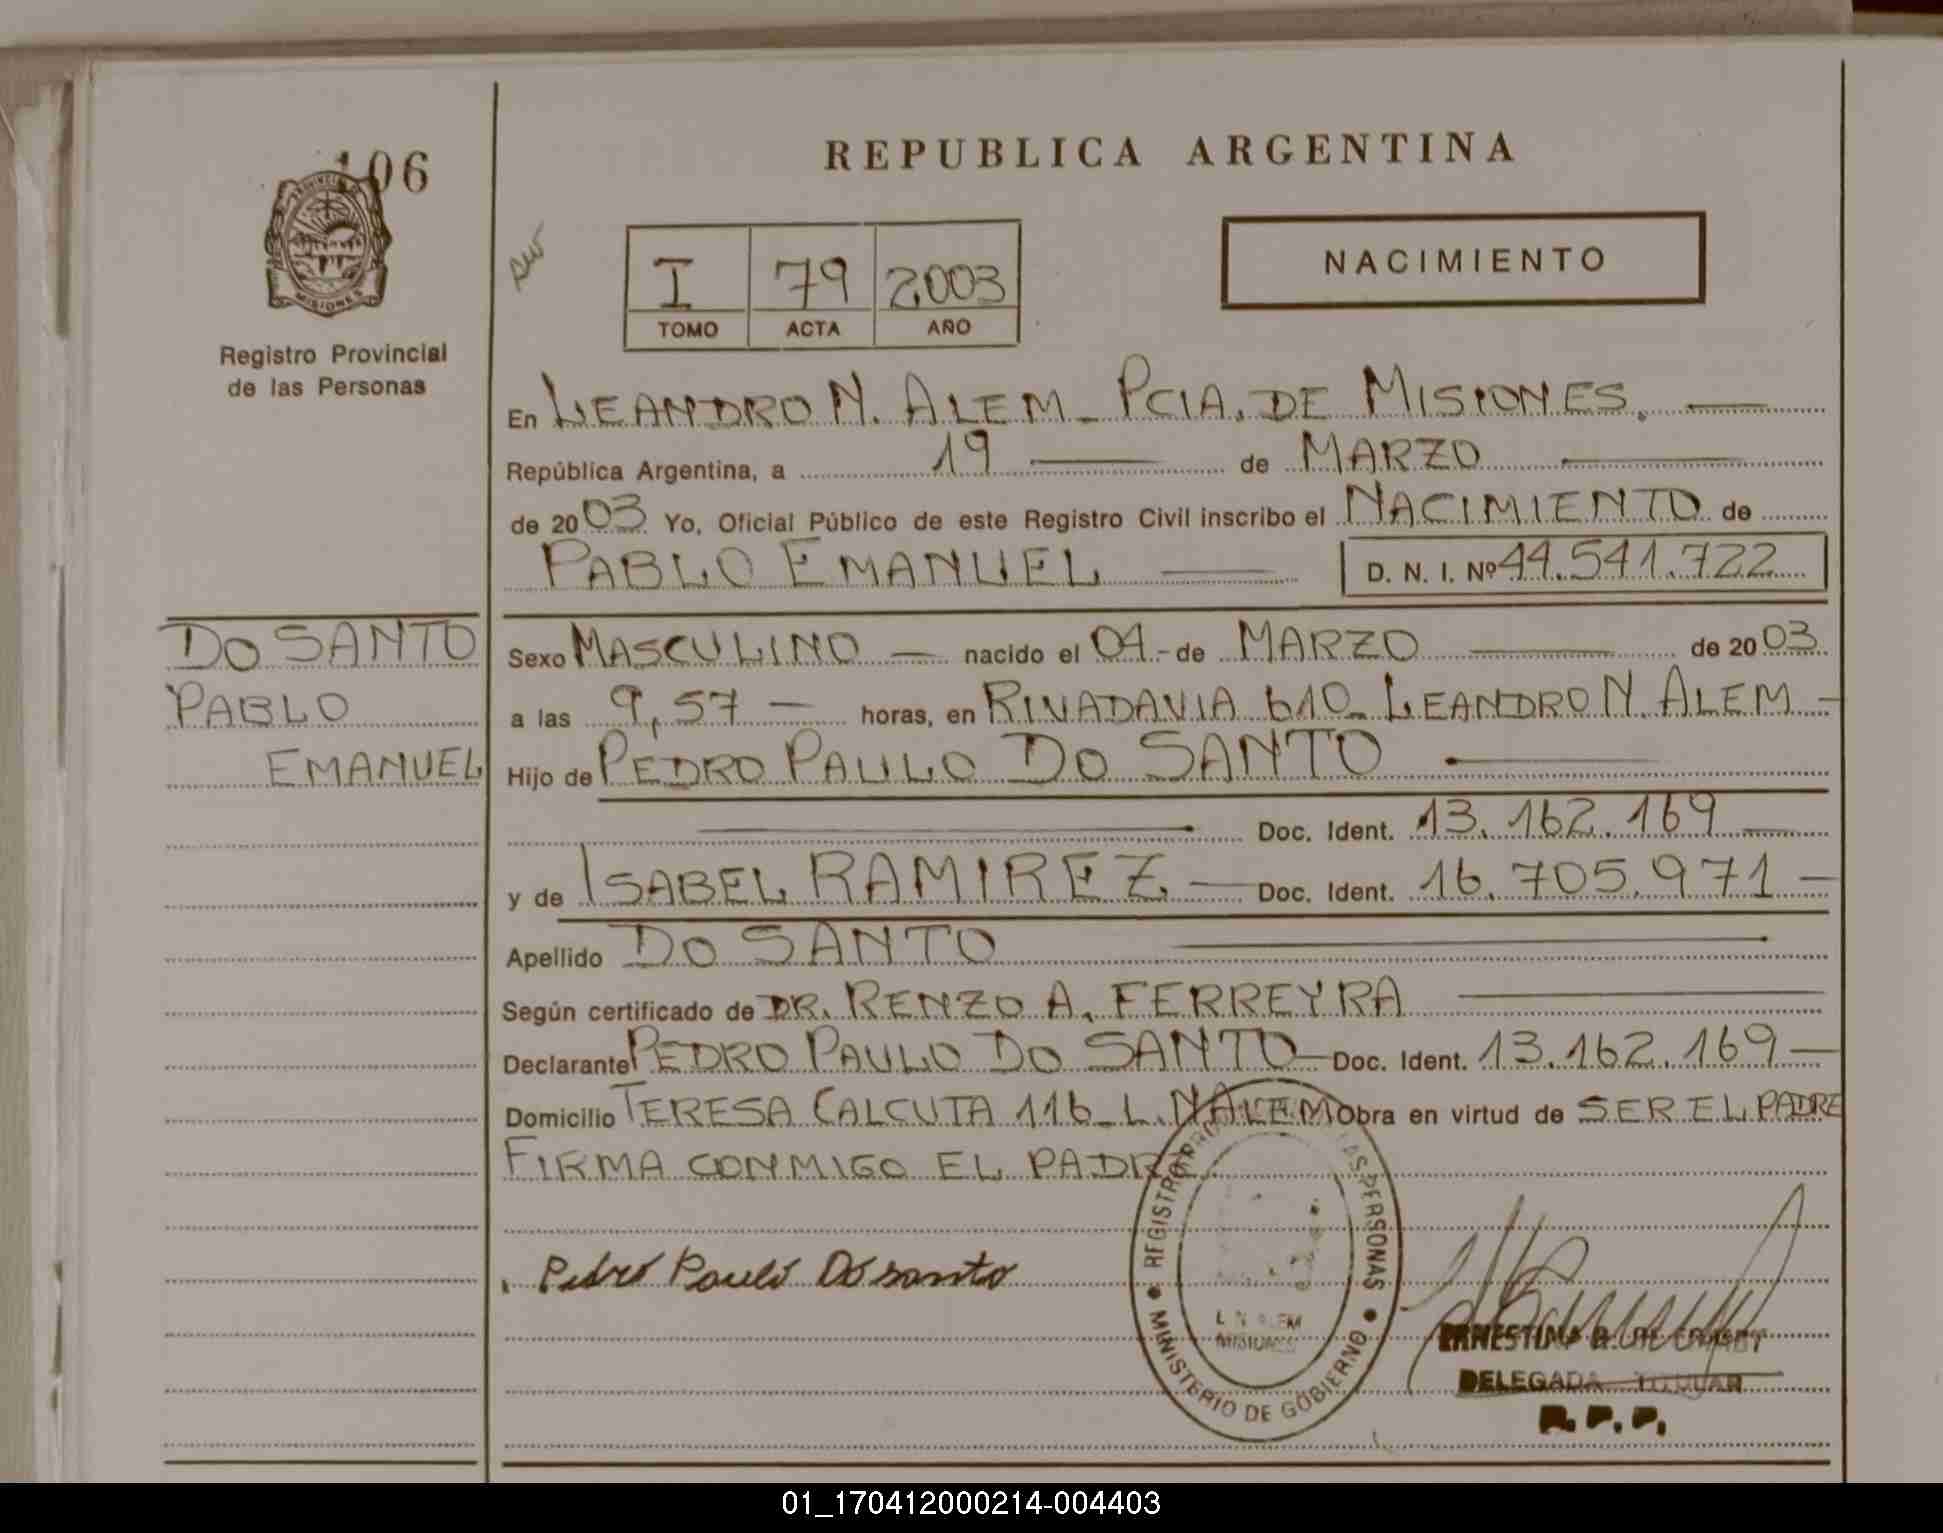 106
REPUBLICA ARGENTINA
PROVINCIA DE
MISIONES
Registro Provincial
de las Personas
I 79 2003
TOMO ACTA AÑO
NACIMIENTO
En LEANDRO N. ALEM - PCIA. DE MISIONES.
República Argentina, a 19 de MARZO
de 2003 Yo, Oficial Público de este Registro Civil inscribo el NACIMIENTO de
PABLO EMANUEL D. N. I. Nº 44.541.722
DO SANTO
PABLO
EMANUEL
Sexo MASCULINO - nacido el 04 - de MARZO de 2003
a las 9,57 - horas, en RIVADAVIA 610 - LEANDRO N. ALEM -
Hijo de PEDRO PAULO DO SANTO
Doc. Ident. 13.162.169
y de ISABEL RAMIREZ - Doc. Ident. 16.705.971 -
Apellido DO SANTO
Según certificado de DR. RENZO A. FERREYRA
Declarante PEDRO PAULO DO SANTO - Doc. Ident. 13.162.169 -
Domicilio TERESA CALCUTA 116 - L. N. ALEM Obra en virtud de SER EL PADRE
FIRMA CONMIGO EL PADRE
Pedro Paulo Do santo
REGISTRO LAS PERSONAS
L N ALEM
MISIONES
MINISTERIO DE GOBIERNO
ERNESTINA
DELEGADA TITULAR
R. P. P.
01_170412000214-004403